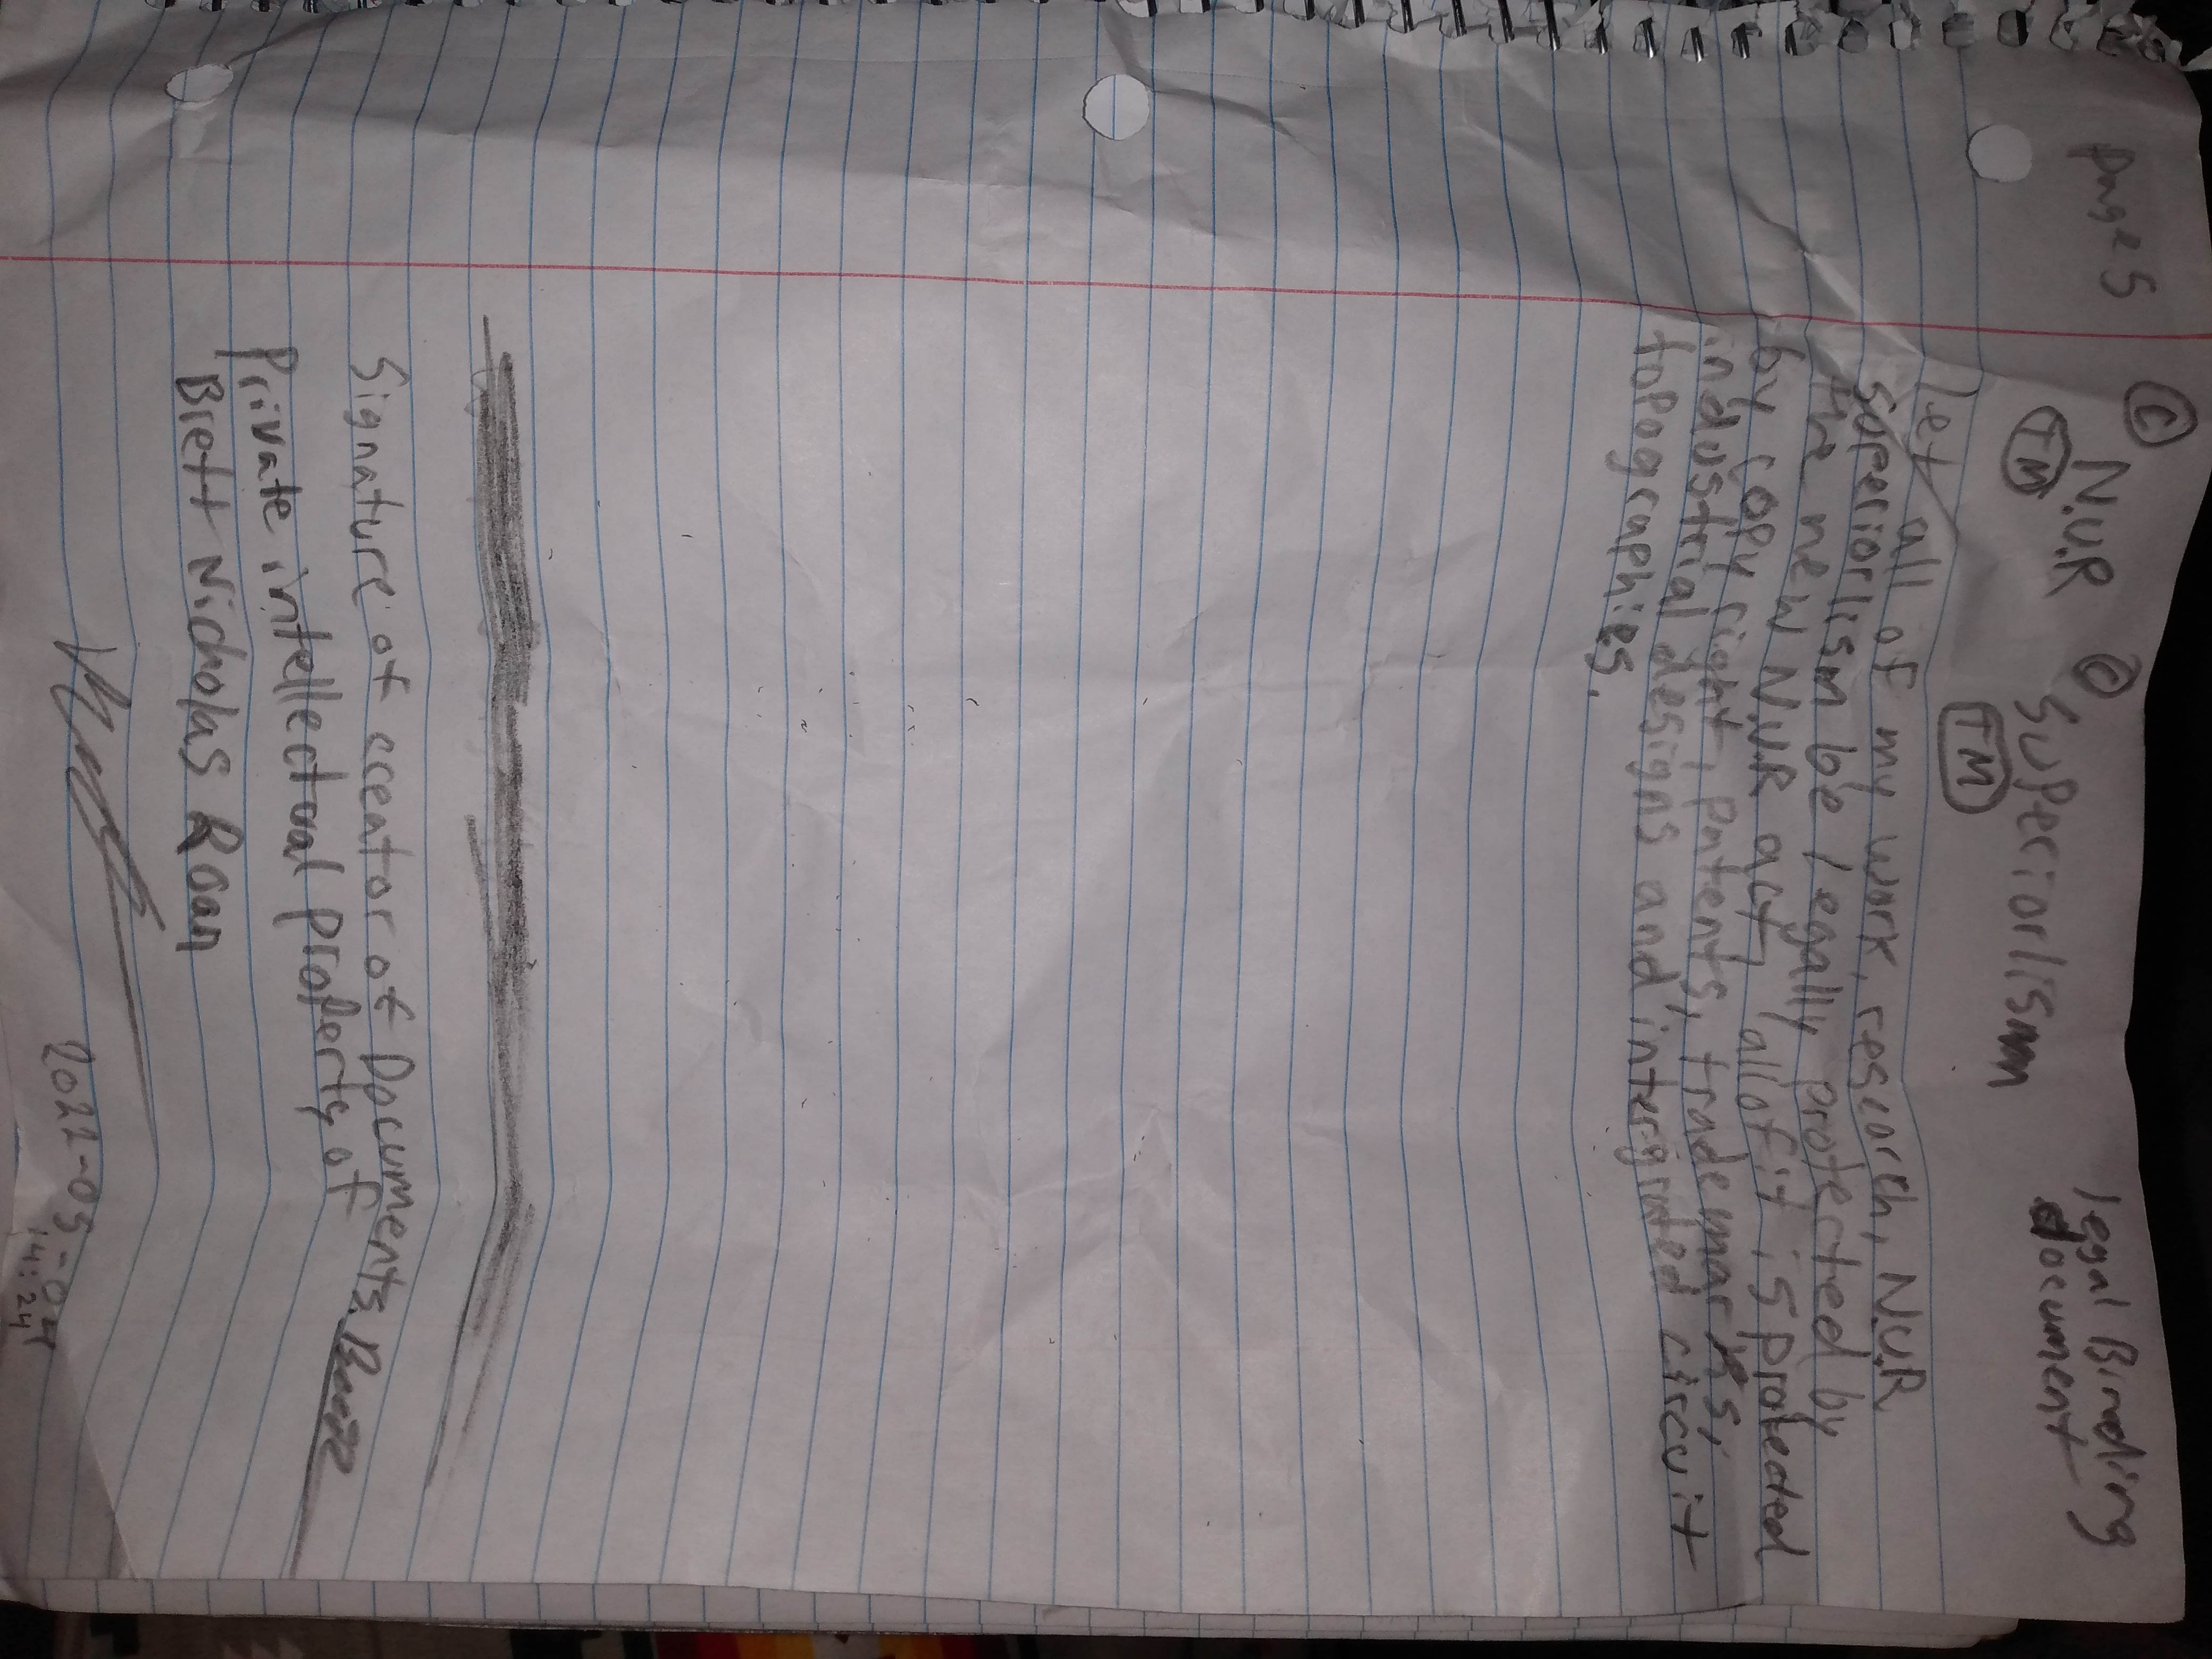 page 5 © N.U.R © Superiorlism legal Binding
TM TM document
let all of my work, research, N.U.R
superiorlism be legally protected by
the new N.U.R act, all of it is protected
by copy right, patents, trademarks,
industrial designs and intergrated circuit
topographies.
Signature of creator of Documents.
Private intellectual property of
Brett Nicholas Roan
2022-05-04
14:24